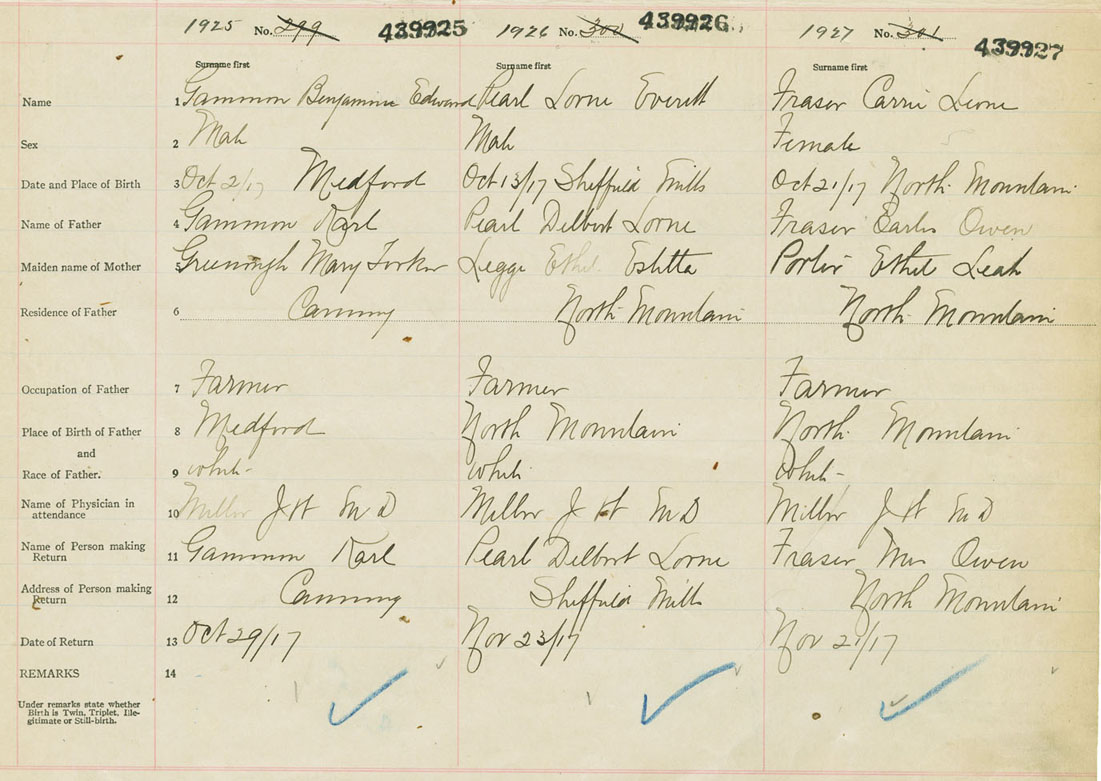 1925 No. 299 439925 1926 No. 300 439926 1927 No. 301 439927
Surname first Surname first Surname first
Name 1 Gammon Benjamine Edward Pearl Lorne Everett Fraser Carrie Leone
Sex 2 Male Male Female
Date and Place of Birth 3 Oct 2/17 Medford Oct 13/17 Sheffield Mills Oct 21/17 North Mountain
Name of Father 4 Gammon Karl Pearl Delbert Lorne Fraser Owen
Maiden name of Mother 5 Mary Legge Ethel Estetta Porter Ethel Leah
Residence of Father 6 Canning North Mountain North Mountain
Occupation of Father 7 Farmer Farmer Farmer
Place of Birth of Father 8 Medford North Mountain North Mountain
and
Race of Father. 9 White White White
Name of Physician in
attendance 10 Miller J H M D Miller J H M D Miller J H M D
Name of Person making
Return 11 Gammon Karl Pearl Delbert Lorne Fraser Mrs Owen
Address of Person making
Return 12 Canning Sheffield Mills North Mountain
Date of Return 13 Oct 29/17 Nov 23/17 Nov 21/17
REMARKS 14
Under remarks state whether
Birth is Twin, Triplet, Ille-
gitimate or Still-birth.